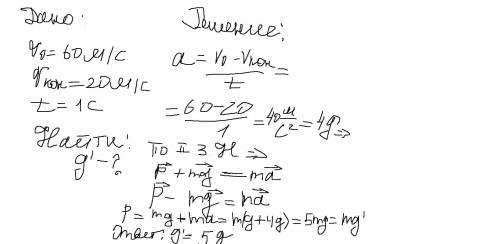 Дано:
V₀=60м/с
Vкон=20м/с
t=1с
Найти:
g'-?
Решение:
a=(V₀-Vкон)/t=
=(60-20)/1=40м/с²=4g⇒
по II З Н ⇒
P⃗+mg⃗=ma⃗
P⃗-mg⃗=ma⃗
P=mg+ma=m(g+4g)=5mg=mg'
Ответ: g'=5g